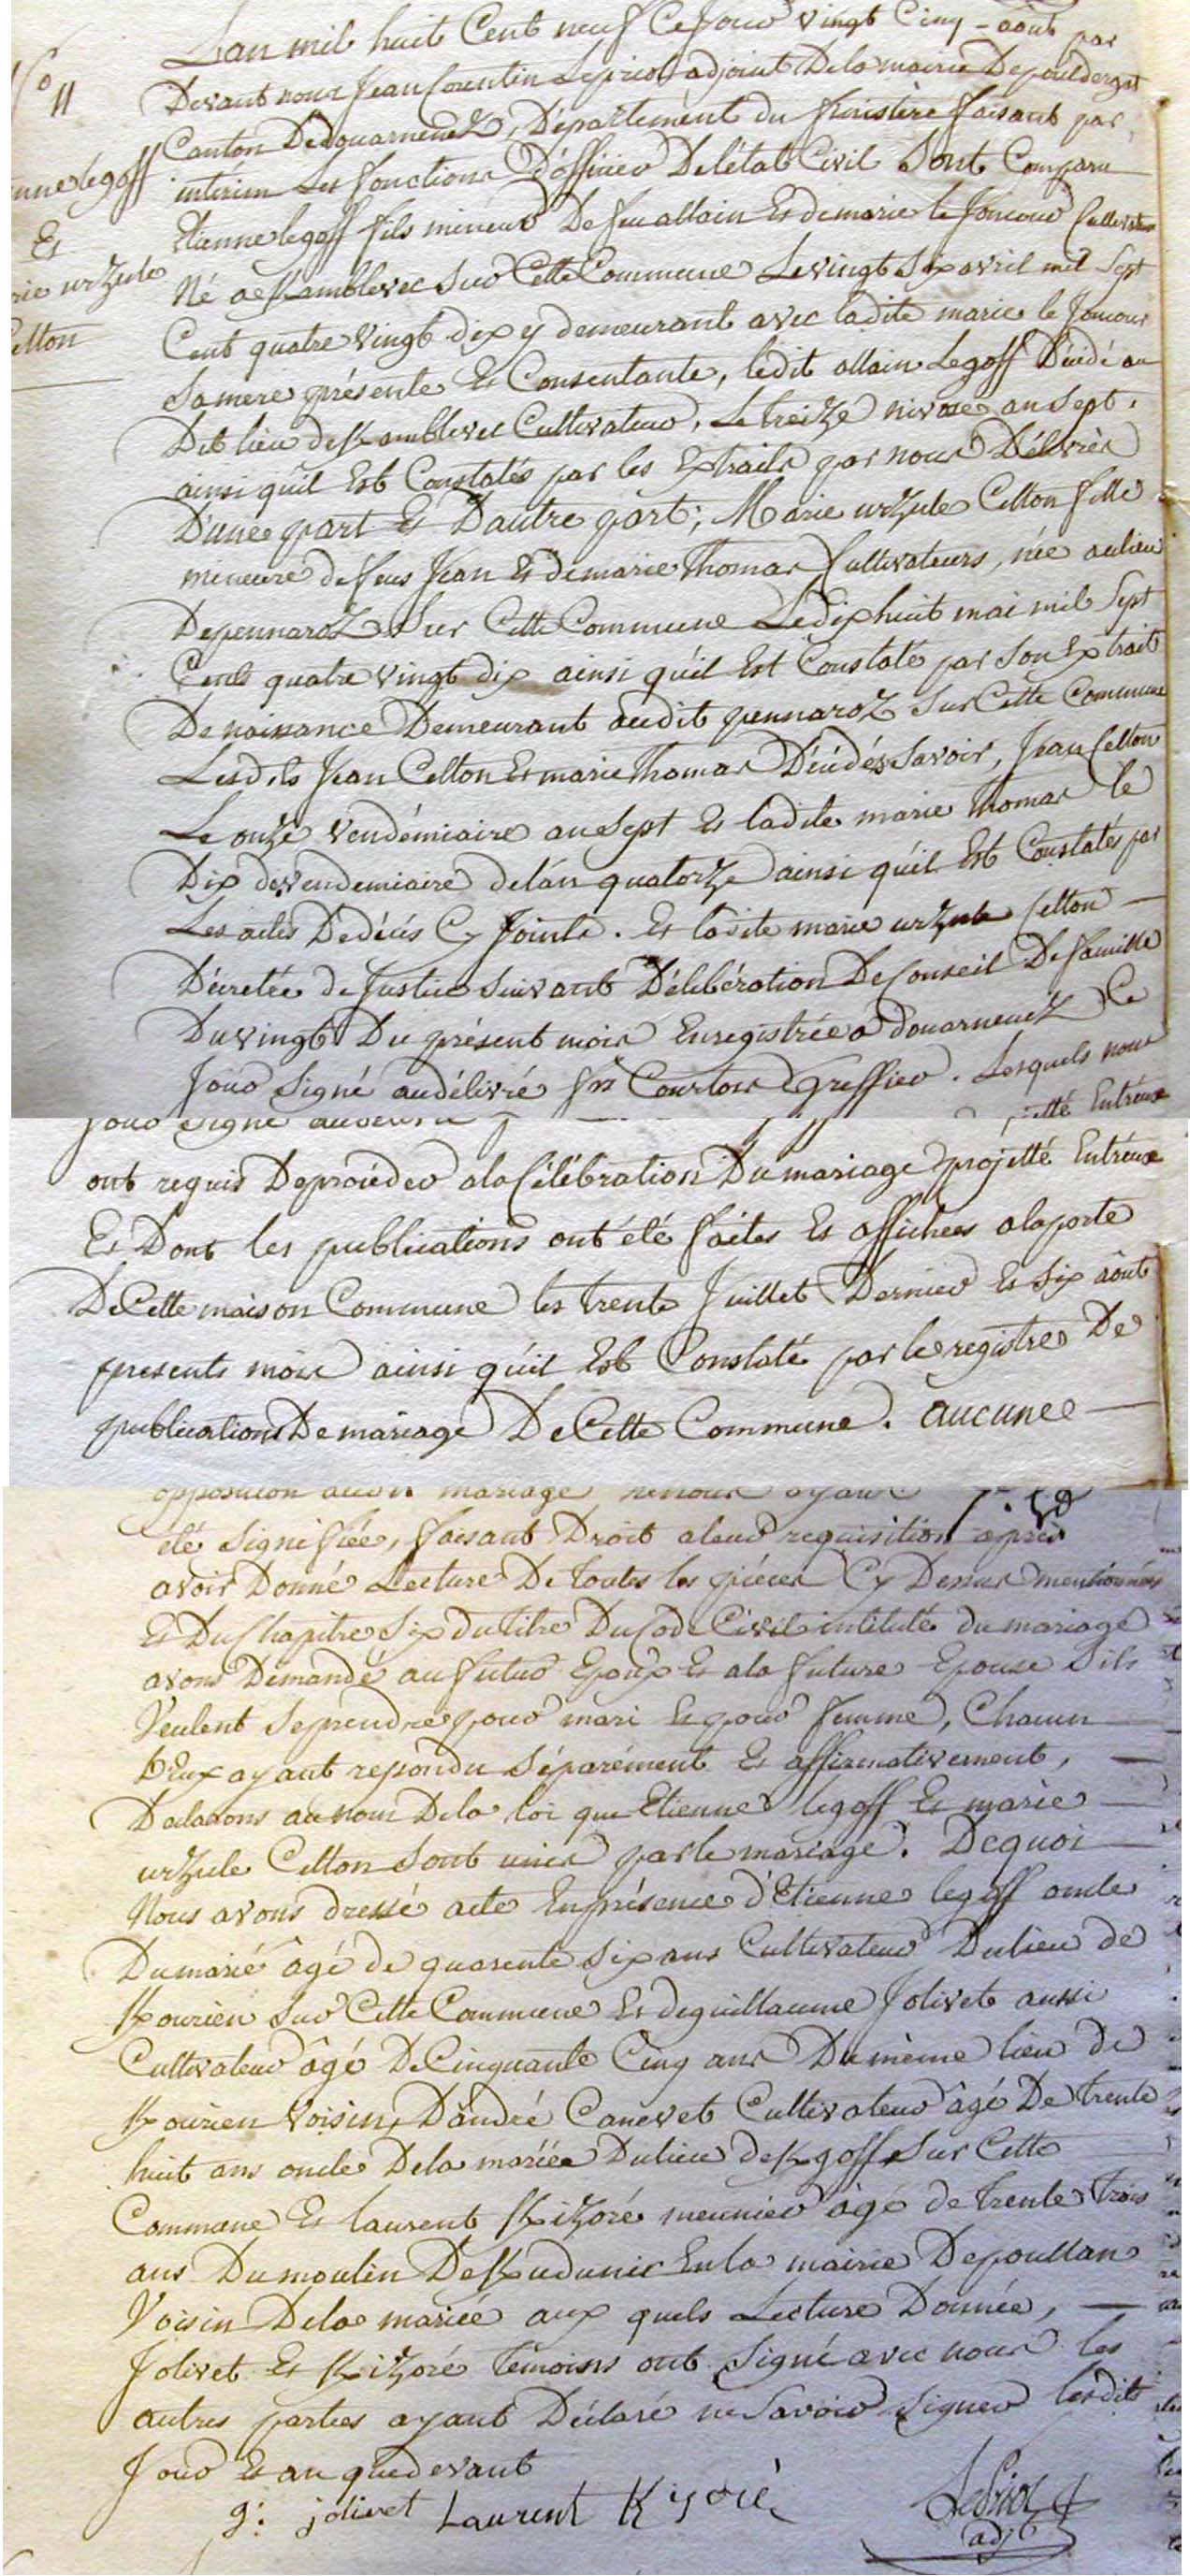 N° 11
nne legoff
Et
rie urzule
elton
Lan mil huit Cent neuf Ce Jour vingt Cinq août par
Devant nous Jean Corentin Lepriol adjoint De la mairie Depouldergat
Canton Dedouarnenez, Département du finistère faisant par
interim Les fonctions D'officier Delétat Civil Sont Comparu
Etienne legoff fils mineur De feu allain Et de marie le Joncour Cultivateur
Né a Kamblevec Sur Cette Commune Le vingt Six avril mil Sept
Cent quatre vingt dix y demeurant avec ladite marie le Joncour
Sa mere présente Et Consentante, ledit allain Legoff Décédé au
Dit lieu de Kamblevec Cultivateur, Le treize nivose an Sept.
ainsi qu'il Est Constatés par les Extraits par nous Délivrés
D'une part Et D'autre part; Marie urzule Celton fille
mineure de feus Jean Et de marie Thomas Cultivateurs, née au lieu
Depennaroz Sur Cette Commune Le dix huit mai mil Sept
Cent quatre vingt dix ainsi qu'il Est Constaté par Son Extrait
De naissance Demeurant audit pennaroz Sur Cette Commune
Lesdits Jean Celton Et marie Thomas Décédés Savoir, Jean Celton
Le onze Vendémiaire an Sept Et ladite marie Thomas le
Dix de vendemiaire de lan quatorze ainsi qu'il Est Constatés par
Les actes Dedécés Cy Joints. Et ladite marie urzule Celton
Décretée de Justice Suivant Délibération De Conseil De famille
Du vingt Du présent mois Enregistrée a Douarnenez Ce
Jour Signé au délivré fs Courtois Greffier. Lesquels nous
ont requis De procéder a la Célébration Du mariage projetté Entreux
Et Dont les publications ont été faites Et affichées a la porte
De Cette maison Commune les trente Juillet Dernier Et Six août
presents mois ainsi qu'il Est Constaté par le registre De
publications De mariage De Cette Commune. aucune
opposition audit mariage ne nous ayant
été Signifiée, faisant Droit a leur requisition après
avoir Donné Lecture De toutes les piéces Cy Dessus mentionnées
Et Du Chapitre Six du titre Du Code Civil intitulé du mariage
avons Demandé au futur Epoux Et a la future Epouse S'ils
Veulent Se prendre pour mari Et pour femme, Chacun
D'Eux ayant repondu Séparément Et affirmativement,
Declarons au nom De la loi que Etienne legoff Et marie
urzule Celton Sont unis par le mariage. Dequoi
Nous avons dressé acte En présence d'Etienne legoff oncle
Du marié âgé de quarente Six ans Cultivateur Du lieu de
Kourien Sur Cette Commune Et de guillaume Jolivet aussi
Cultivateur âgé De Cinquante Cinq ans Du même lieu de
Kourien Voisin, D'andré Canevet Cultivateur âgé De trente
huit ans oncle De la mariée Du lieu de Kgoff Sur Cette
Commune Et laurent Kizoré meunier âgé de trente trois
ans Du moulin De Kudunic En la mairie Depoullan
Voisin De la mariée aux quels Lecture Donnée,
Jolivet Et Kizoré témoins ont Signé avec nous les
autres parties ayant Déclaré ne Savoir Signer lesdits
Jour Et an que devant
g: jolivet Laurent K
Lepriol
adjt